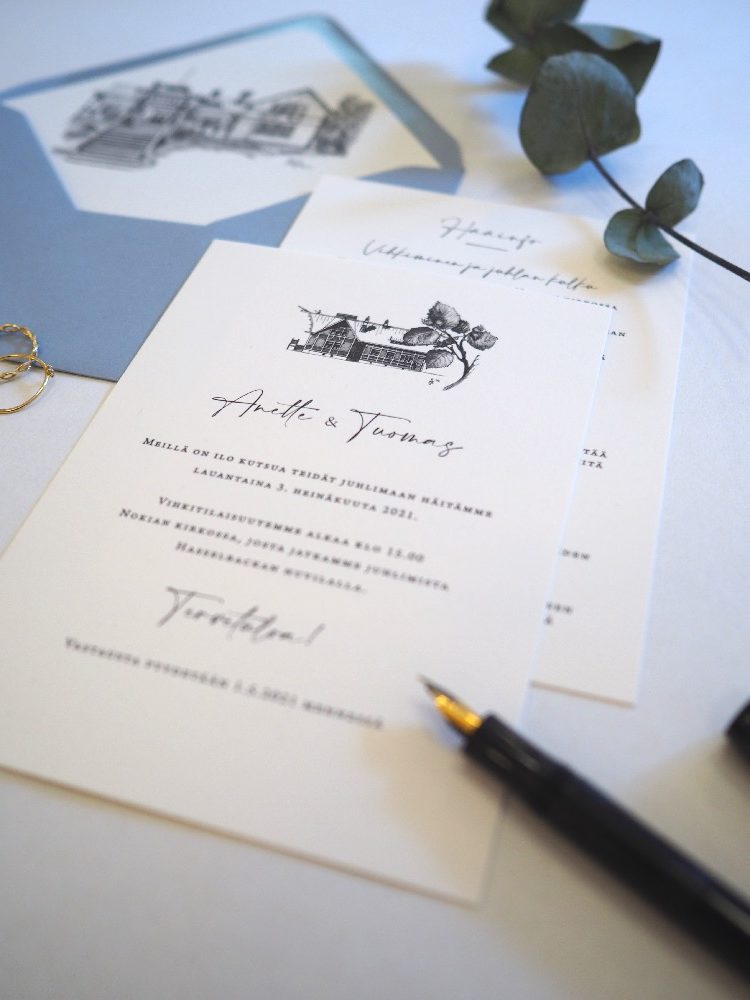 Anette & Tuomas
MEILLÄ ON ILO KUTSUA TEIDÄT JUHLIMAAN HÄITÄMME
LAUANTAINA 3. HEINÄKUUTA 2021.
VIHKITILAISUUTEMME ALKAA KLO 15.00
NOKIAN KIRKOSSA, JOSTA JATKAMME JUHLIMISTA
HASSELBACKAN HUVILALLE.
Tervetuloa!
VASTAUSTA PYYDETÄÄN 1.5.2021 MENNESSÄ
Haainfo
Vihkiminen ja juhlan kulku
TÄÄ
ITÄ